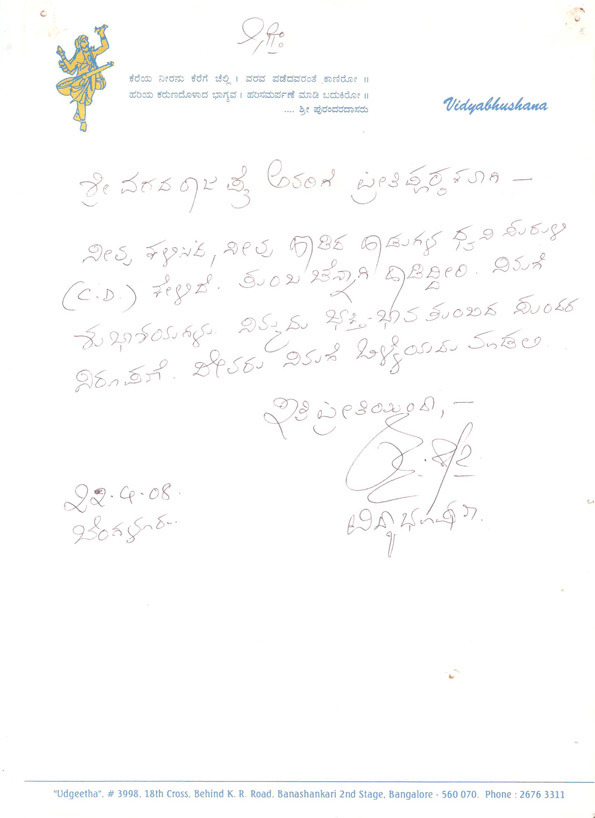 ಶ್ರೀಃ
ಕೆರೆಯ ನೀರನು ಕೆರೆಗೆ ಚೆಲ್ಲಿ । ವರವ ಪಡೆದವರಂತೆ ಕಾಣಿರೋ ॥
ಹರಿಯ ಕರುಣದೊಳಾದ ಭಾಗ್ಯವ । ಹರಿಸಮರ್ಪಣೆ ಮಾಡಿ ಬದುಕಿರೋ ॥
.... ಶ್ರೀ ಪುರಂದರದಾಸರು
Vidyabhushana
ಶ್ರೀ ವರದರಾಜ ಪೈ ಅವರಿಗೆ ಪ್ರೀತಿಪೂರ್ವಕವಾಗಿ –
ನೀವು ಕಳಿಸಿದ, ನೀವು ಹಾಡಿದ ಹಾಡುಗಳ ಧ್ವನಿ ಸುರುಳಿ
(C.D.) ಕೇಳಿದೆ. ತುಂಬ ಚೆನ್ನಾಗಿ ಹಾಡಿದ್ದೀರಿ. ನಿಮಗೆ
ಶುಭಾಶಯಗಳು. ನಿಮ್ಮದು ಭಕ್ತಿ-ಭಾವ ತುಂಬಿದ ಸುಂದರ
ನಿರೂಪಣೆ. ದೇವರು ನಿಮಗೆ ಒಳ್ಳೆಯದು ಮಾಡಲಿ.
ಇತಿ ಪ್ರೀತಿಯಿಂದ, –
22.4.08.
ವಿದ್ಯಾಭೂಷಣ.
ಬೆಂಗಳೂರು.
"Udgeetha". # 3998, 18th Cross, Behind K. R. Road, Banashankari 2nd Stage, Bangalore - 560 070. Phone : 2676 3311